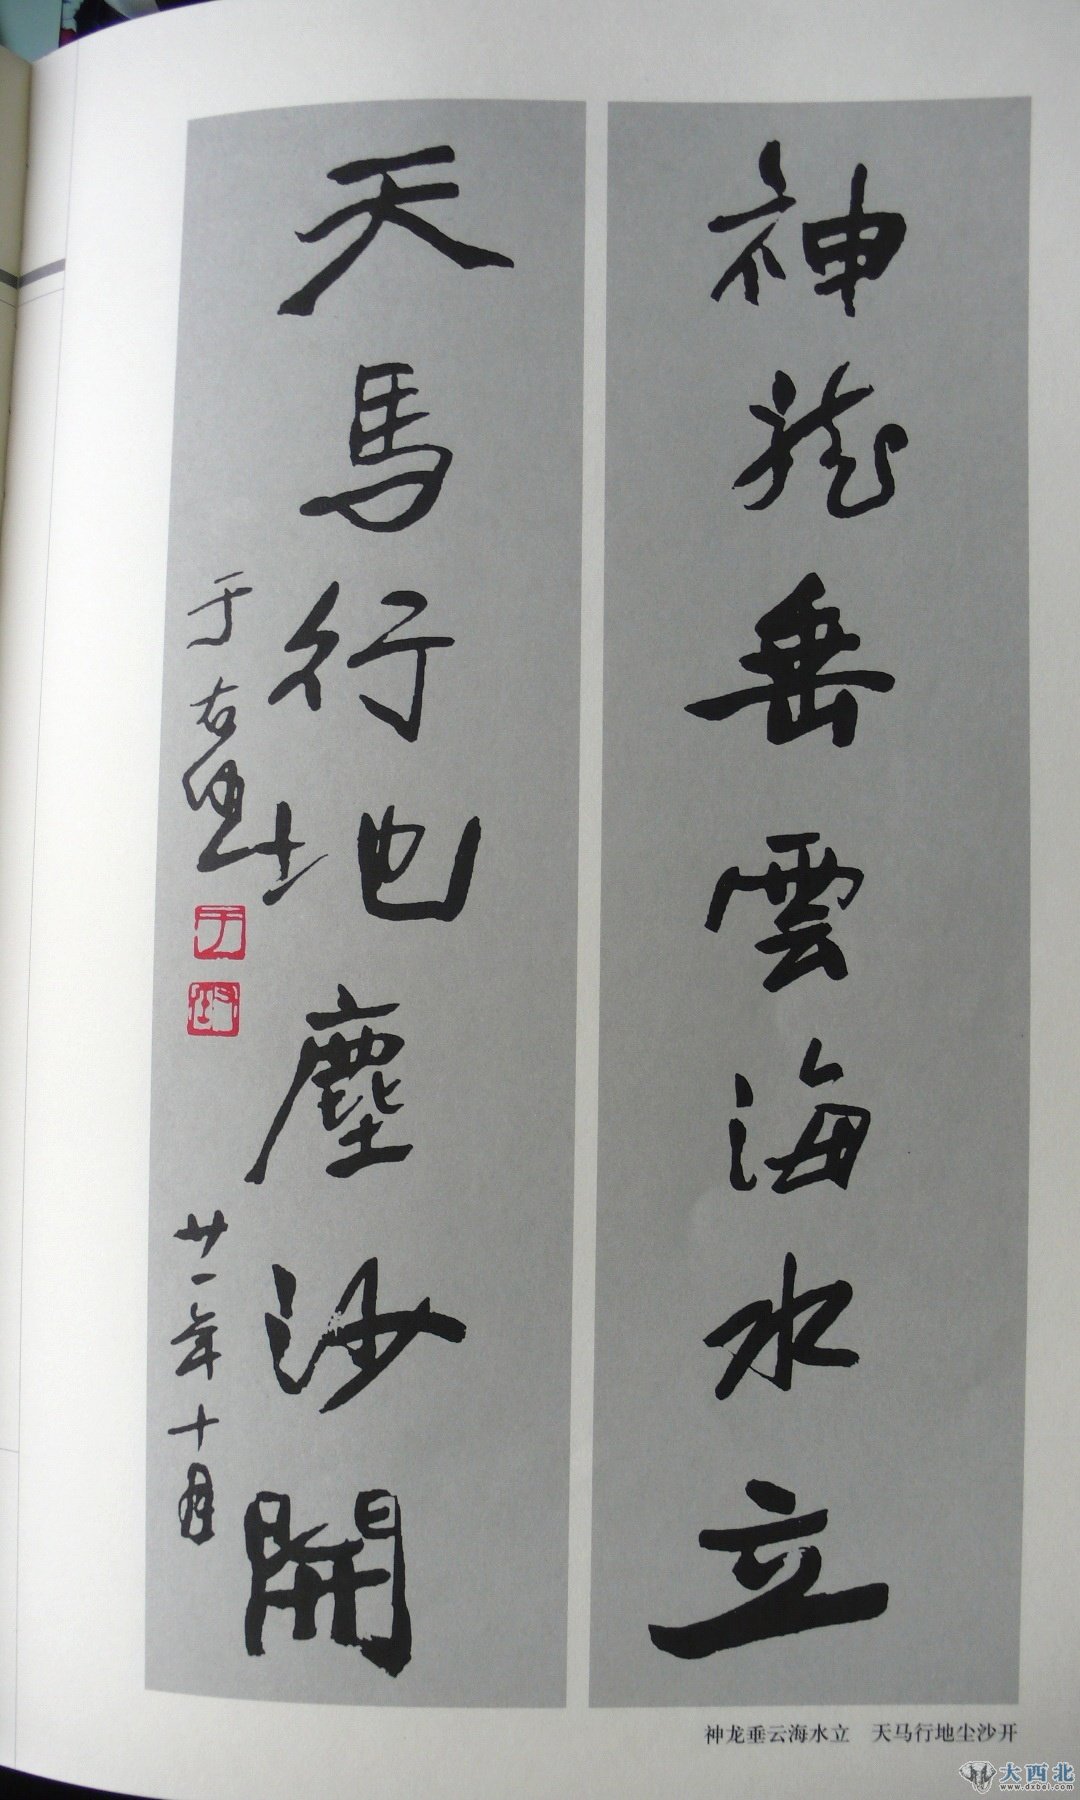 神龍垂雲海水立
天馬行地塵沙開
于右任
廿一年十月
神龙垂云海水立　天马行地尘沙开
大西北
www.dxbei.com